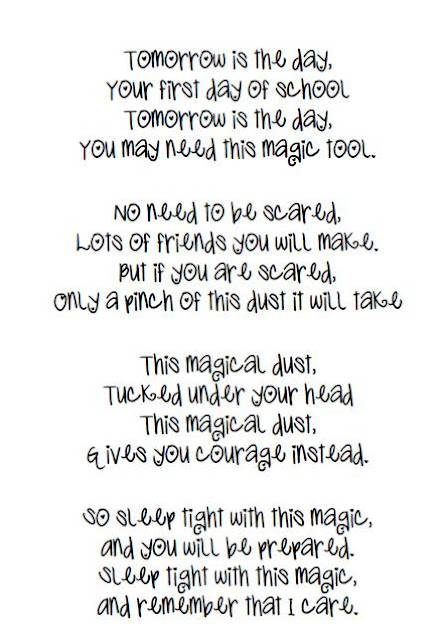 Tomorrow is the day,
Your first day of school
Tomorrow is the day,
You may need this magic tool.
No need to be scared,
Lots of friends you will make.
But if you are scared,
Only a pinch of this dust it will take
This magical dust,
Tucked under your head
This magical dust,
Gives you courage instead.
So sleep tight with this magic,
and you will be prepared.
Sleep tight with this magic,
and remember that I care.